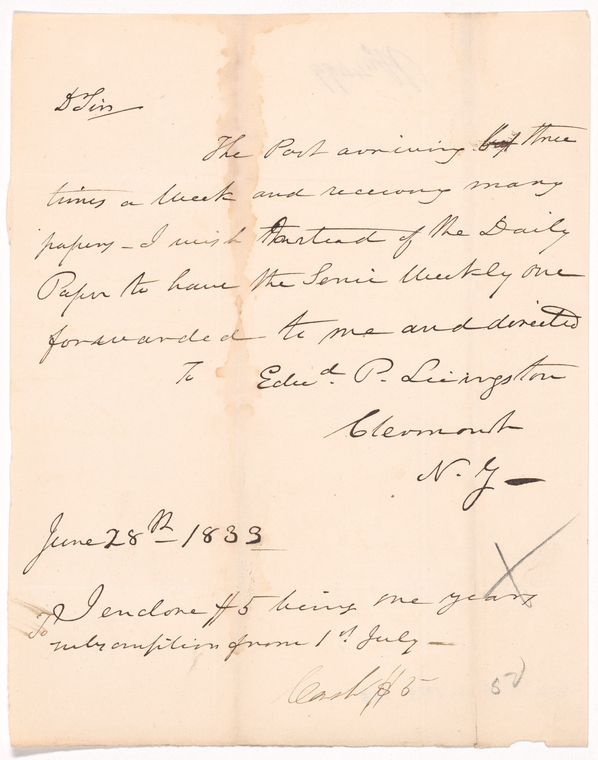 Dr Sir
The Post arriving but three
times a Week and receiving many
papers - I wish Instead of the Daily
Paper to have the Semi Weekly one
forwarded to me and directed
To Edwd. P. Livingston
Clermont
N. Y -
June 28th 1833
I enclose $5 being one years
subscription from 1st July -
Cash $5